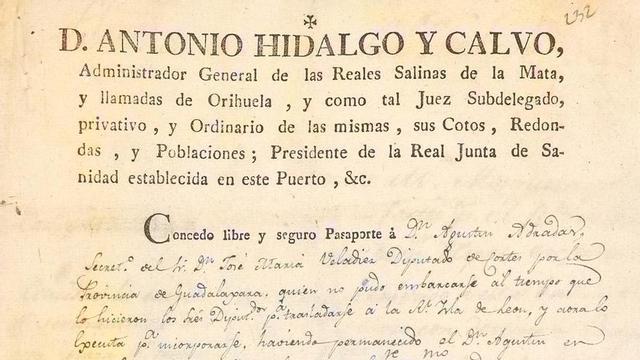 232
✠
D. ANTONIO HIDALGO Y CALVO,
Administrador General de las Reales Salinas de la Mata,
y llamadas de Orihuela , y como tal Juez Subdelegado,
privativo , y Ordinario de las mismas , sus Cotos , Redon-
das , y Poblaciones ; Presidente de la Real Junta de Sa-
nidad establecida en este Puerto , &c.
Concedo libre y seguro Pasaporte á Dn. Agustin
Secreto. del Sr. Dn. José Maria Veladiez Diputado de Cortes por la
Provincia de Guadalaxara, quien no pudo embarcarse al tiempo que
lo hicieron los trés Diputdos. pa. trasladarse á la Rl. Isla de Leon, y aora lo
executa pa. incorporarse, haviendo permanecido el Dn. Agustin en